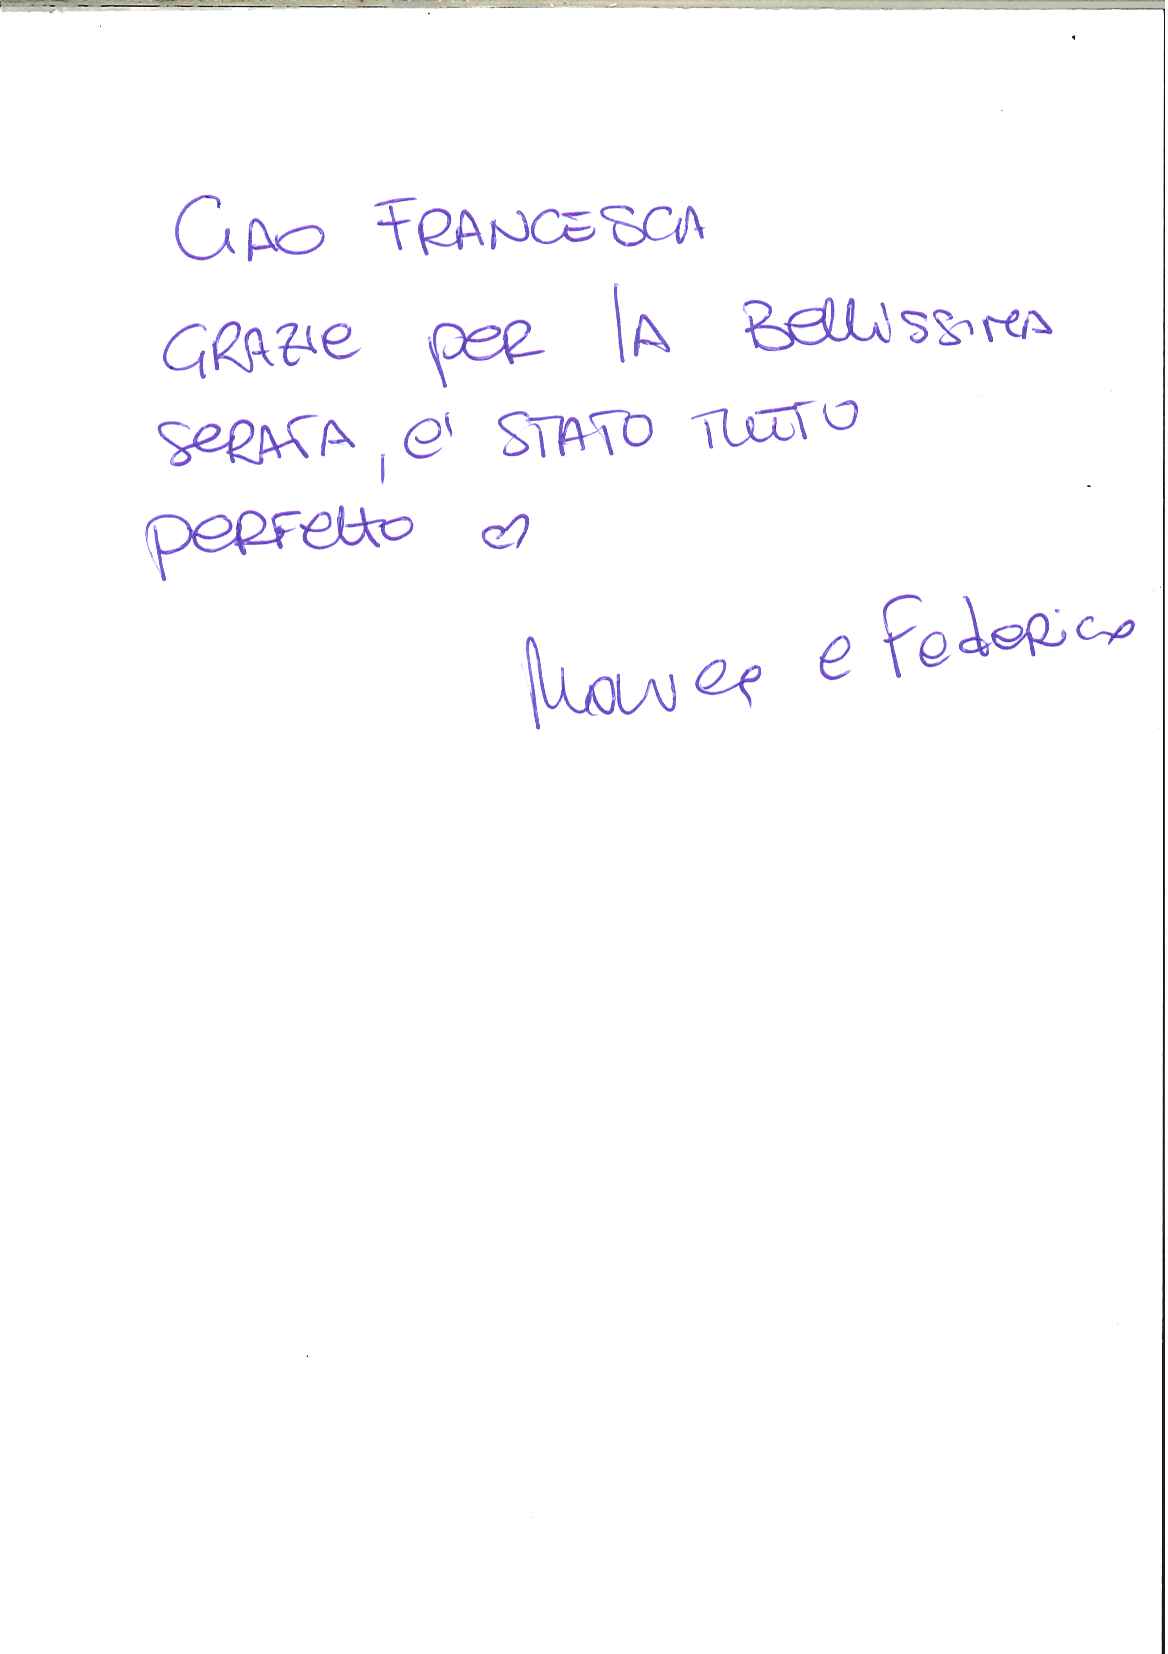 CIAO FRANCESCA
GRAZIE PER LA BELLISSIMA
SERATA, E' STATO TUTTO
PERFETTO ♡
e Federico